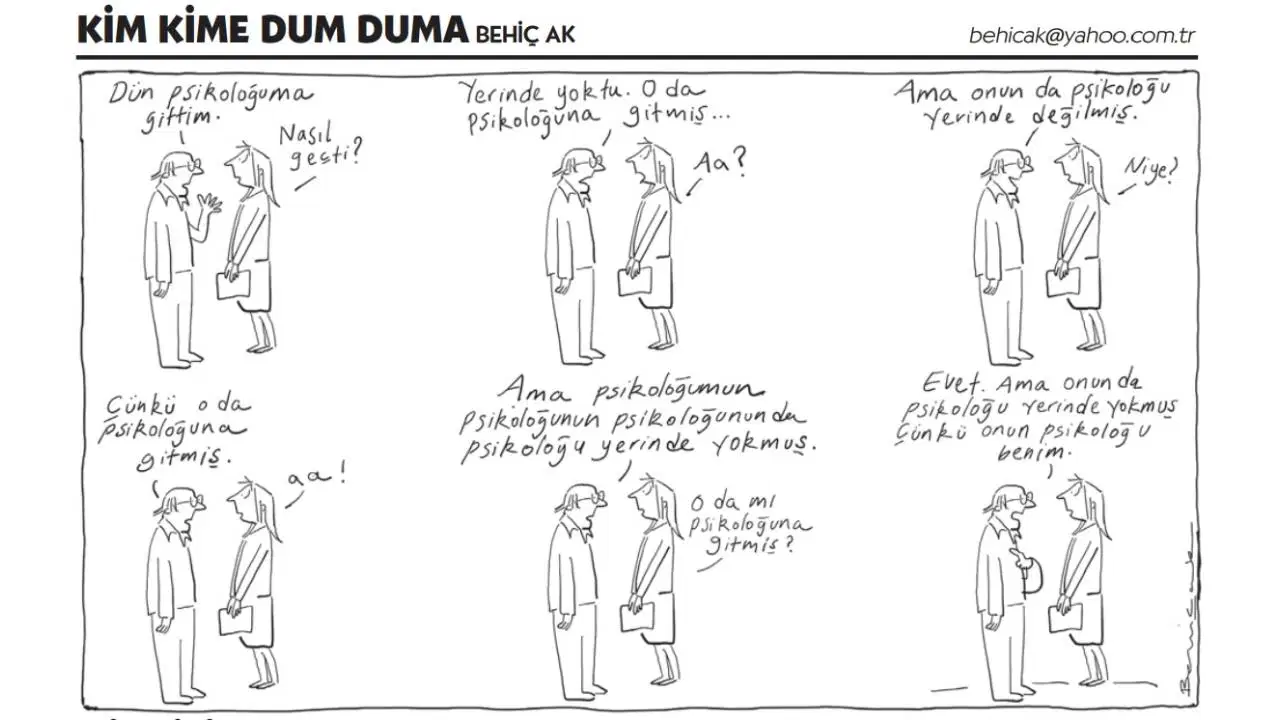 KİM KİME DUM DUMA BEHİÇ AK
behicak@yahoo.com.tr
Dün psikoloğuma
gittim.
Nasıl
geçti?
Yerinde yoktu. O da
psikoloğuna gitmiş...
Aa?
Ama onun da psikoloğu
yerinde değilmiş.
Niye?
Çünkü o da
psikoloğuna
gitmiş.
aa!
Ama psikoloğumun
psikoloğunun psikoloğunun da
psikoloğu yerinde yokmuş.
O da mı
psikoloğuna
gitmiş?
Evet. Ama onun da
psikoloğu yerinde yokmuş
Çünkü onun psikoloğu
benim.